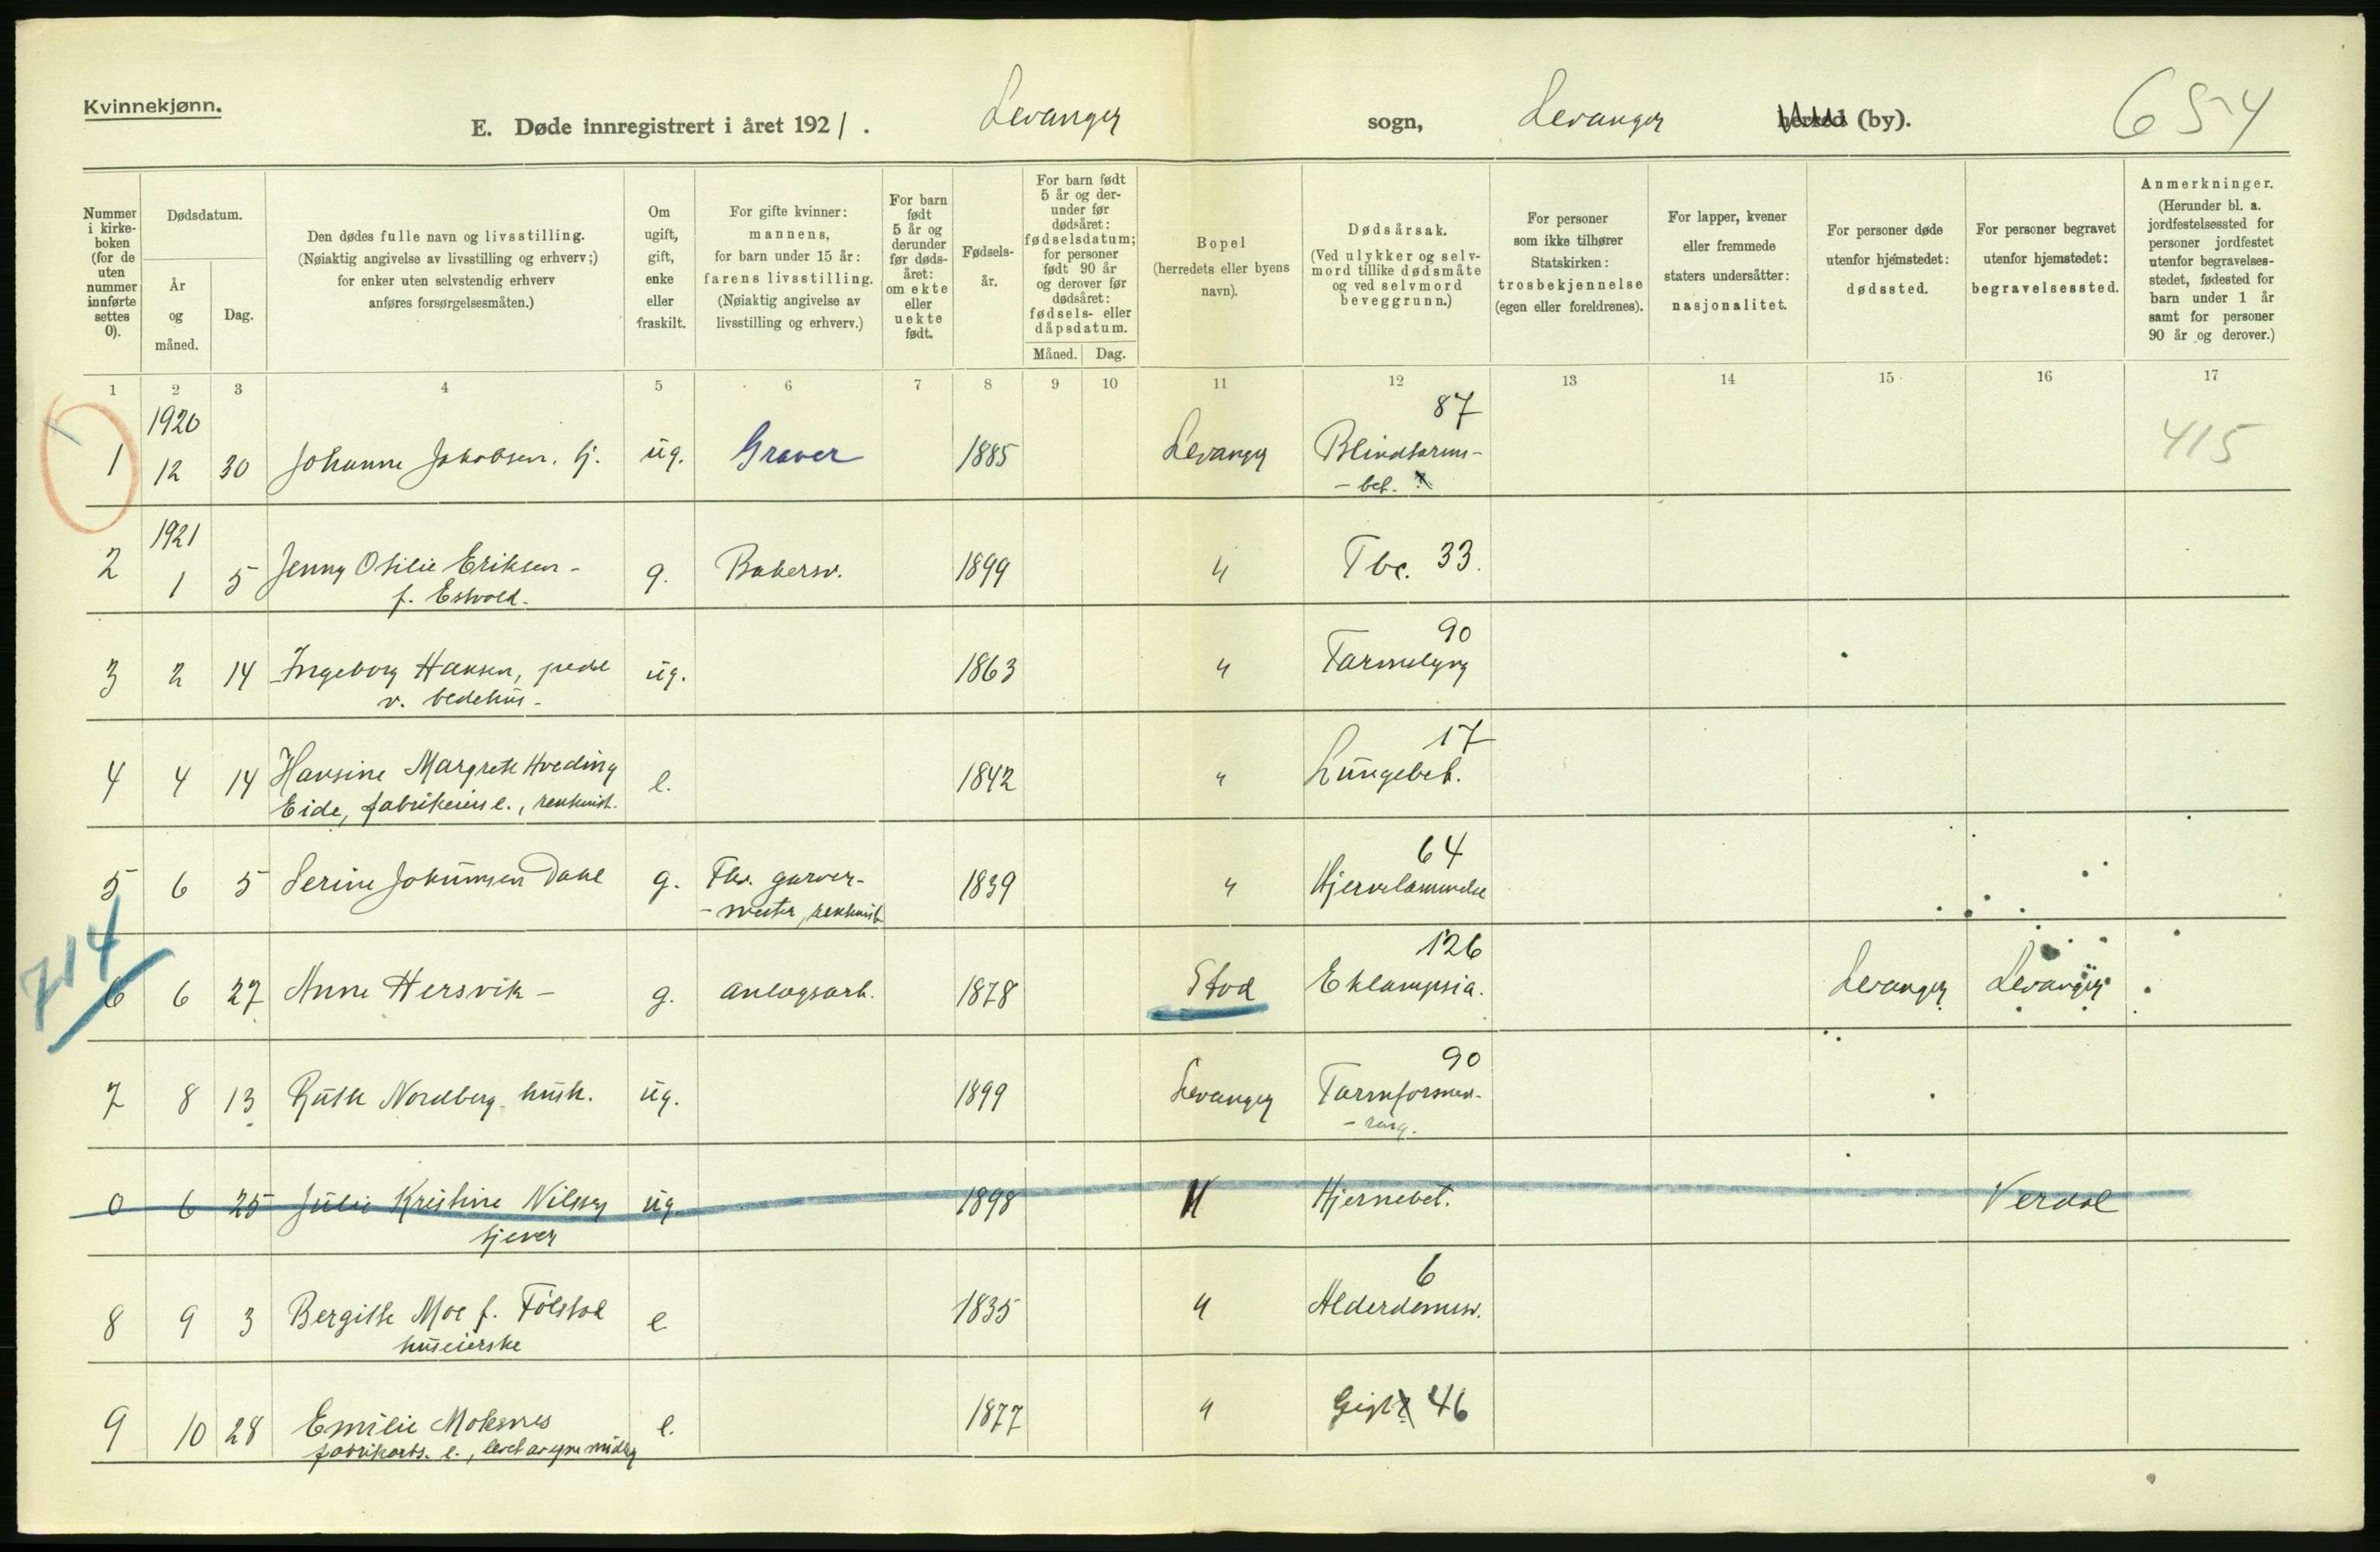 Kvinnekjønn.
E. Døde innregistrert i året 1921. Levanger sogn, Levanger herred (by). 654
Nummer i kirke-boken (for de uten nummer innførte settes 0).
Dødsdatum.
År og måned.
Dag.
Den dødes fulle navn og livsstilling.
(Nøiaktig angivelse av livsstilling og erhverv;)
for enker uten selvstendig erhverv
anføres forsørgelsesmåten.)
Om ugift, gift, enke eller fraskilt.
For gifte kvinner:
mannens,
for barn under 15 år:
farens livsstilling.
(Nøiaktig angivelse av
livsstilling og erhverv.)
For barn født 5 år og derunder før døds-året: om ekte eller uekte født.
Fødsels-år.
For barn født 5 år og der-under før dødsåret: fødselsdatum; for personer født 90 år og derover før dødsåret: fødsels- eller dåpsdatum.
Måned. Dag.
Bopel
(herredets eller byens
navn).
Dødsårsak.
(Ved ulykker og selv-
mord tillike dødsmåte
og ved selvmord
beveggrunn.)
For personer
som ikke tilhører
Statskirken:
trosbekjennelse
(egen eller foreldrenes).
For lapper, kvener
eller fremmede
staters undersåtter:
nasjonalitet.
For personer døde
utenfor hjemstedet:
dødssted.
For personer begravet
utenfor hjemstedet:
begravelsessted.
Anmerkninger.
(Herunder bl. a.
jordfestelsessted for
personer jordfestet
utenfor begravelses-
stedet, fødested for
barn under 1 år
samt for personer
90 år og derover.)
1 2 3 4 5 6 7 8 9 10 11 12 13 14 15 16 17
1920 87
1 12 30 Johanne Jakobsen. tj. ug. Graver 1885 Levanger Blindtarms- 415
- bet. ?
1921
2 1 5 Jenny Otilie Eriksen - g. Bakersv. 1899 " Tbc. 33.
f. Estvold.
90
3 2 14 Ingeborg Hansen, ug. 1863 " Tarmslyng
v. bedehus -
17
4 4 14 Hansine Margrete Hveding e. 1842 " Lungebet.
Eide, fabrikeiers e., rentenist.
64
5 6 5 Serine Johannsen Dahl g. Fhv. garver- 1839 " Hjertelammelse
- mester, rentenist
714
126
6 6 27 Anne Hersvik - g. anlegsarb. 1878 Stod Eklampsia. Levanger Levanger
90
7 8 13 Ruth Nordberg hush. ug. 1899 Levanger Tarmforsnev-
- ring.
0 6 25 Julie Kristine Nilssen ug. 1898 " Hjernebet. Verdal
tjener
6
8 9 3 Bergitte Moe f. Tølstol e 1835 " Alderdomssv.
huseierske
9 10 28 Emilie Moksnes e. 1877 " Gigt? 46
fabrikarb. e., levet av egne midler